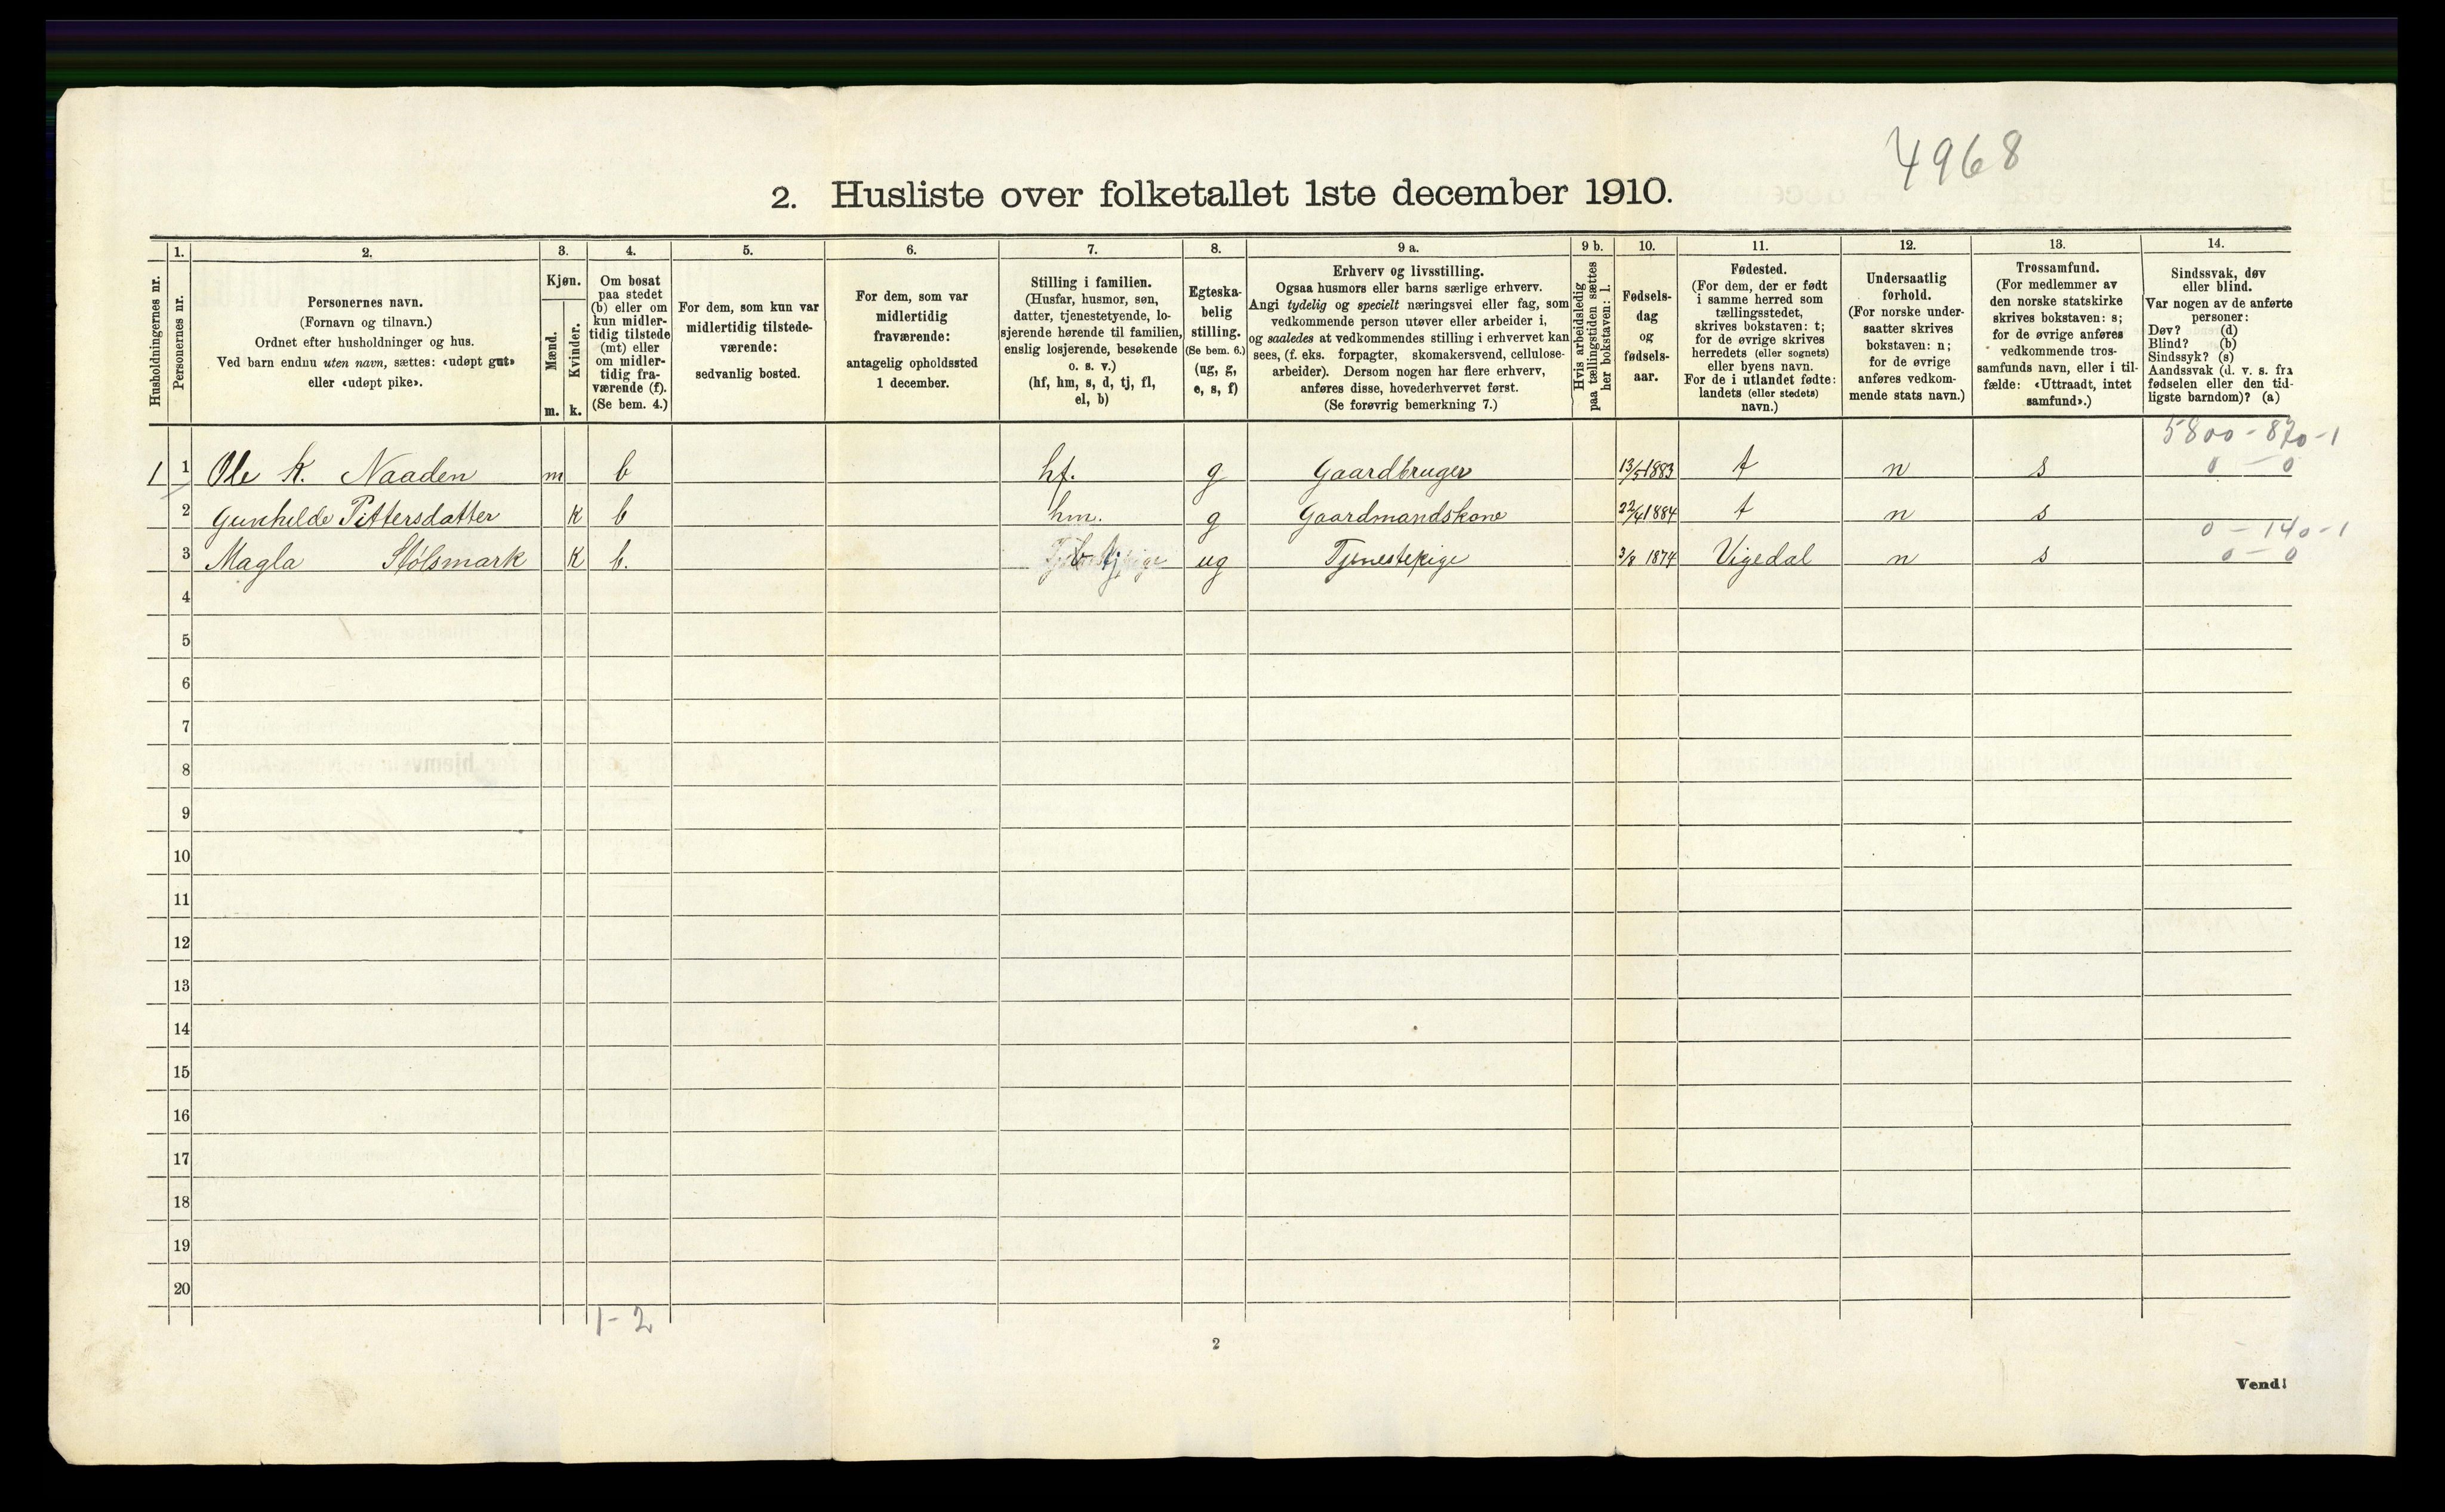 4968
2. Husliste over folketallet 1ste december 1910.
Husholdningernes nr.
1.
Personernes nr.
2.
Personernes navn.
(Fornavn og tilnavn.)
Ordnet efter husholdninger og hus.
Ved barn endnu uten navn, sættes: «udøpt gut»
eller «udøpt pike».
3.
Kjøn.
Mænd.
Kvinder.
m. k.
4.
Om bosat
paa stedet
(b) eller om
kun midler-
tidig tilstede
(mt) eller
om midler-
tidig fra-
værende (f).
(Se bem. 4.)
5.
For dem, som kun var
midlertidig tilstede-
værende:
sedvanlig bosted.
6.
For dem, som var
midlertidig
fraværende:
antagelig opholdssted
1 december.
7.
Stilling i familien.
(Husfar, husmor, søn,
datter, tjenestetyende, lo-
sjerende hørende til familien,
enslig losjerende, besøkende
o. s. v.)
(hf, hm, s, d, tj, fl,
el, b)
8.
Egteska-
belig
stilling.
(Se bem. 6.)
(ug, g,
e, s, f)
9 a.
Erhverv og livsstilling.
Ogsaa husmors eller barns særlige erhverv.
Angi tydelig og specielt næringsvei eller fag, som
vedkommende person utøver eller arbeider i,
og saaledes at vedkommendes stilling i erhvervet kan
sees, (f. eks. forpagter, skomakersvend, cellulose-
arbeider). Dersom nogen har flere erhverv,
anføres disse, hovederhvervet først.
(Se forøvrig bemerkning 7.)
9 b.
Hvis arbeidsledig
paa tællingstiden sættes
her bokstaven: l.
10.
Fødsels-
dag
og
fødsels-
aar.
11.
Fødested.
(For dem, der er født
i samme herred som
tællingsstedet,
skrives bokstaven: t;
for de øvrige skrives
herredets (eller sognets)
eller byens navn.
For de i utlandet fødte:
landets (eller stedets)
navn.)
12.
Undersaatlig
forhold.
(For norske under-
saatter skrives
bokstaven: n;
for de øvrige
anføres vedkom-
mende stats navn.)
13.
Trossamfund.
(For medlemmer av
den norske statskirke
skrives bokstaven: s;
for de øvrige anføres
vedkommende tros-
samfunds navn, eller i til-
fælde: «Uttraadt, intet
samfund».)
14.
Sindssvak, døv
eller blind.
Var nogen av de anførte
personer:
Døv? (d)
Blind? (b)
Sindssyk? (s)
Aandssvak (d. v. s. fra
fødselen eller den tid-
ligste barndom)? (a)
5800 - 870 - 1
1 1 Ole K. Naaden m b hf. g Gaardbruger 13/5 1883 t n s 0 - 0
2 Gunhilde Pittersdatter K b hm. g Gaardmandskone 22/4 1884 t n s
0 - 140 - 1
3 Magla Stølsmark K b. tj ug Tjenestepige 3/8 1874 Vigedal n s 0 - 0
4
5
6
7
8
9
10
11
12
13
14
15
16
17
18
19
20
1 - 2
2
Vend!